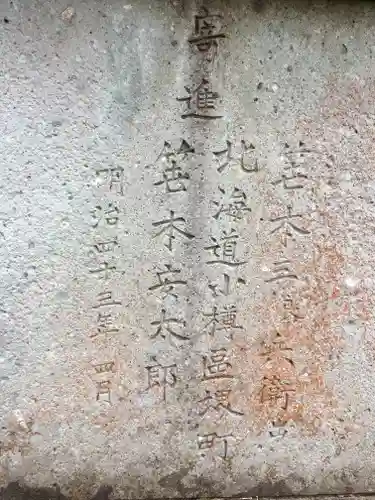 寄進
笹木三良兵衛
北海道小樽區堺町
笹木安太郎
明治四十三年四月